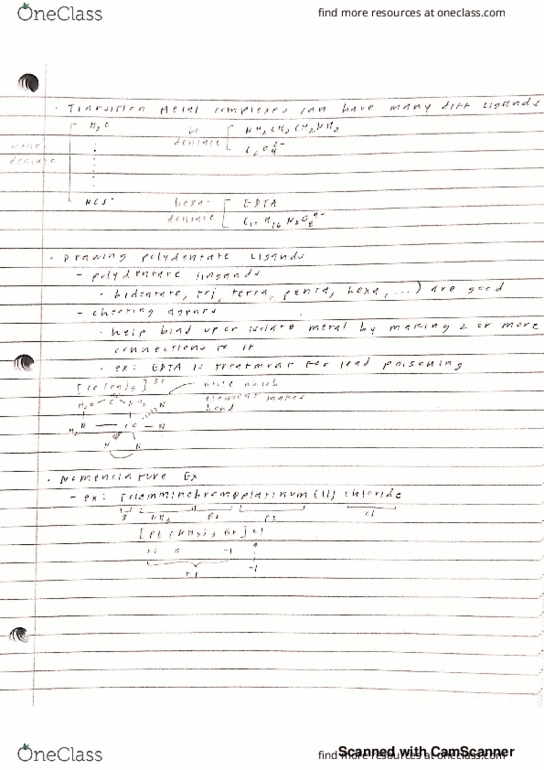 OneClass
find more resources at oneclass.com
· Transition Metal complexes can have many diff ligands
H₂O
bi
dentate
NH₂CH₂CH₂NH₂
mono
dentate
C₂O₄²⁻
NCS⁻
hexa-
dentate
EDTA
· Drawing polydentate Ligands
- polydentate ligands
· bidentate, tri, tetra, penta, hexa, ...) are good
- chelating agents
· help bind up or isolate metal by making 2 or more
connections to it
· ex: EDTA is treatment for lead poisoning
write which
element makes
bond
· Nomenclature Ex
- ex: Triamminebromoplatinum (II) chloride
3 NH₃ Br Pt Cl
[Pt (NH₃)₃ Br] Cl
-1
+1 -1
OneClass
find more resources at oneclass.com
Scanned with CamScanner